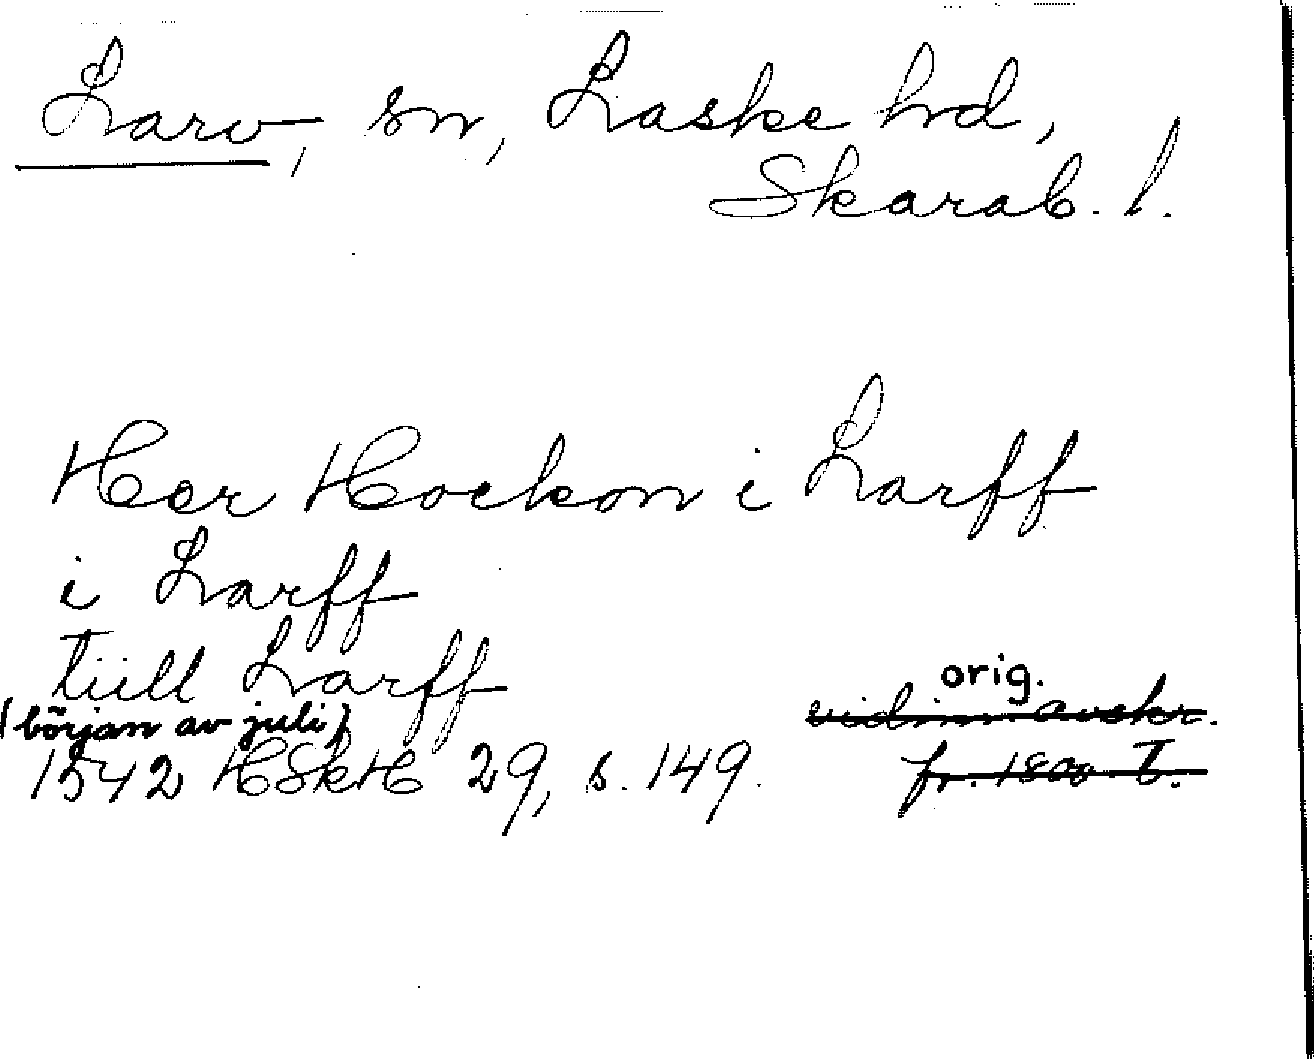 Larv, sn, Laske hd,
Skarab. l.
Her Hockon i Larff
i Larff
tiill Larff
(början av juli)
orig.
vidim. avskr.
1542 HSkH 29, s. 149.
fr. 1800-t.